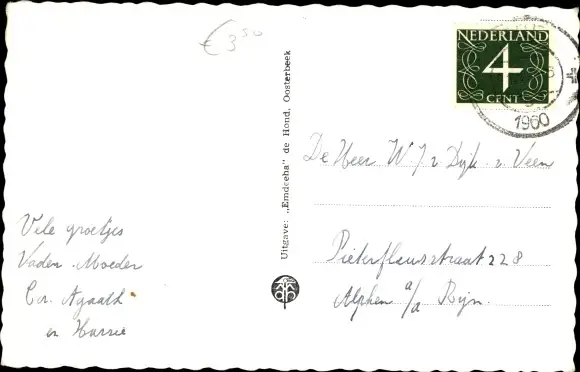 € 3,50
NEDERLAND
4
CENT
1960
Uitgave: „Emdeeha” de Hond, Oosterbeek
De Heer W. J. v. Dijk. v. Veen
Pieterfleurstraat 228
Alphen a/a Rijn.
Vele groetjes
Vader Moeder
Cor. Agaath
en Harrie